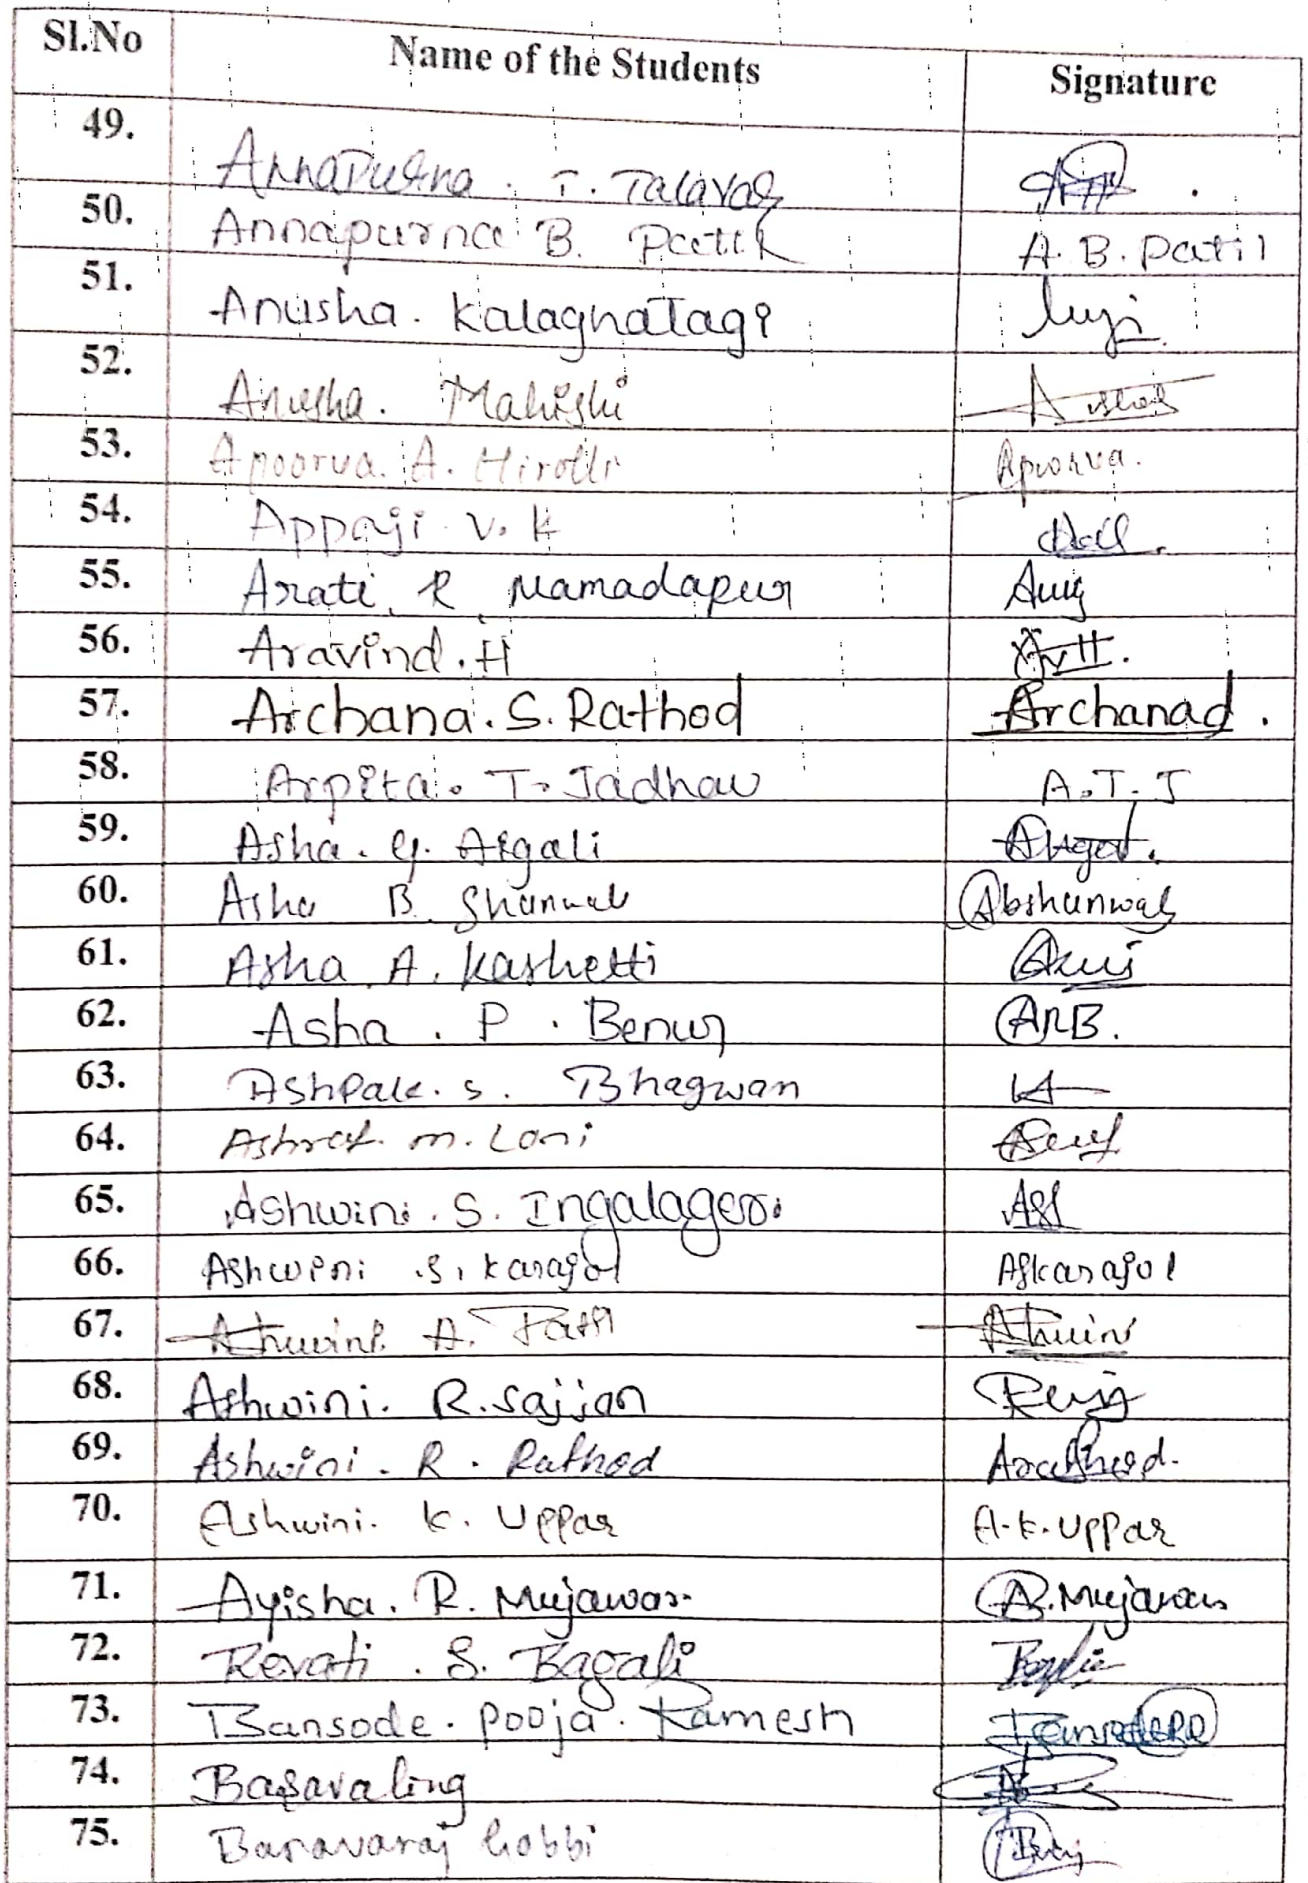 Sl.No Name of the Students Signature
49. Annapurna . I. Talavar
50. Annapurna B. Patil A. B. Patil
51. Anusha. Kalaghatagi
52. Anusha. Mahishi
53. Apoorva. A. Hirolli Apoorva.
54. Appaji V. K
55. Arati R Mamadapur
56. Aravind. H
57. Archana. S. Rathod Archanad.
58. Arpita. T. Jadhav A.T.J
59. Asha. G. Aigali
60. Asha B. Shanwad Abshanwad
61. Asha A. Kashetti
62. Asha . P . Benur
63. Ashpak. S. Bhagwan
64. Ashraf. M. Loni
65. Ashwini. S. Ingalageri
66. Ashwini .S. Karajol ASkarajol
67. Ashwini. A. Patil Ashwini
68. Ashwini. R. Sajjan
69. Ashwini. R. Rathod
70. Ashwini. K. Uppar A.K. Uppar
71. Ayisha. R. Mujawar A.Mujawar
72. Revati . S. Bagali
73. Bansode. Pooja. Ramesh
74. Basavaling
75. Basavaraj hobbi